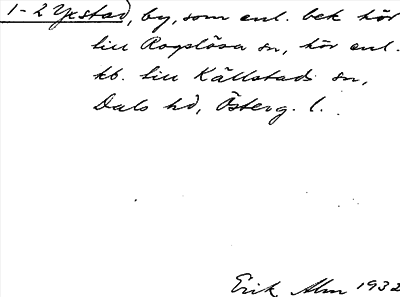 1-2 Ystad, by, som enl. bek hör
till Rogslösa sn, hör enl.
kb. till Källstads sn,
Dals hd, Österg. l.
Erik Alm 1932